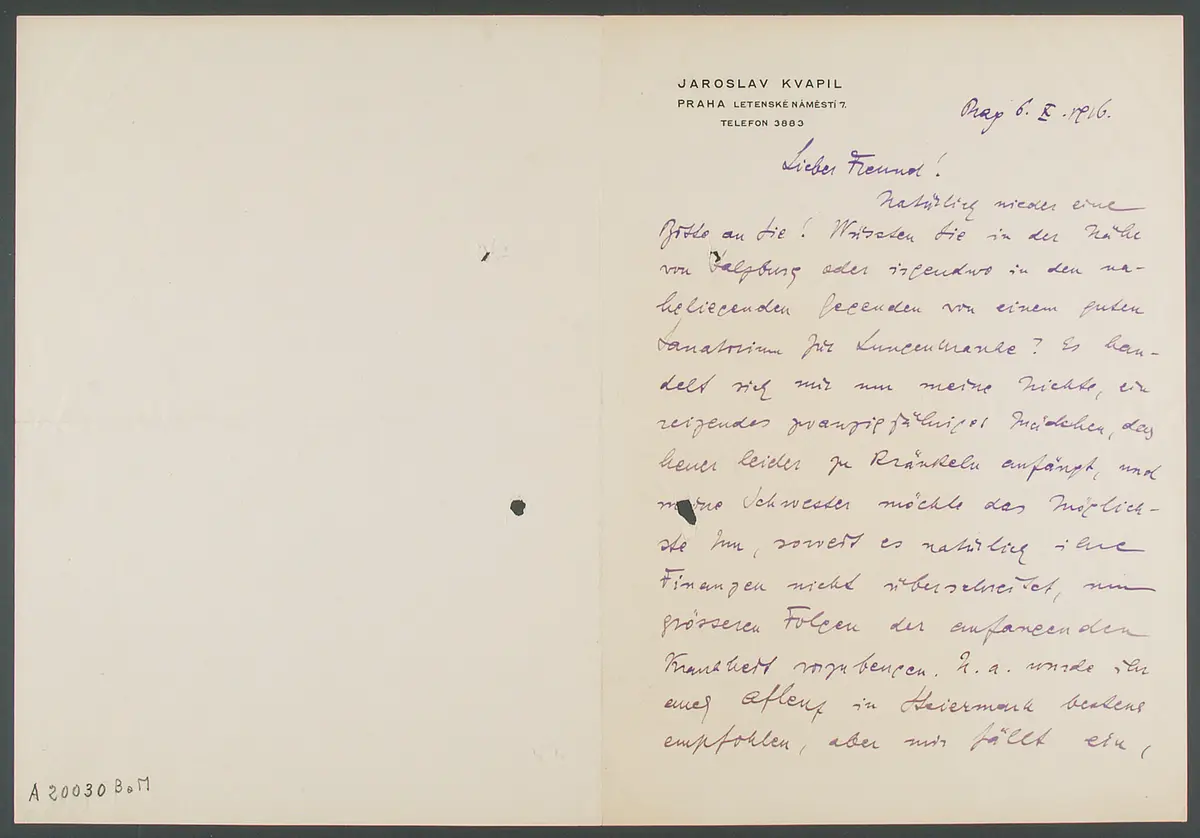 JAROSLAV KVAPIL
PRAHA LETENSKÉ NÁMĚSTÍ 7.
TELEFON 3883
Prag 6. X. 1916.
Lieber Freund!
Natürlich wieder eine
Bitte an Sie! Wüssten Sie in der Nähe
von Salzburg oder irgendwo in den na-
heliegenden Gegenden von einem guten
Sanatorium für Lungenkranke? Es han-
delt sich mir um meine Nichte, ein
reizendes zwanzigjähriges Mädchen, das
heuer leider zu kränkeln anfängt, und
meine Schwester möchte das Möglich-
ste tun, soweit es natürlich ihre
Finanzen nicht überschreitet, um
grösseren Folgen der anfangenden
Krankheit vorzubeugen. U. a. wurde ihr
auch Aflenz in Steiermark bestens
empfohlen, aber mir fällt ein,
A 20030 BaM